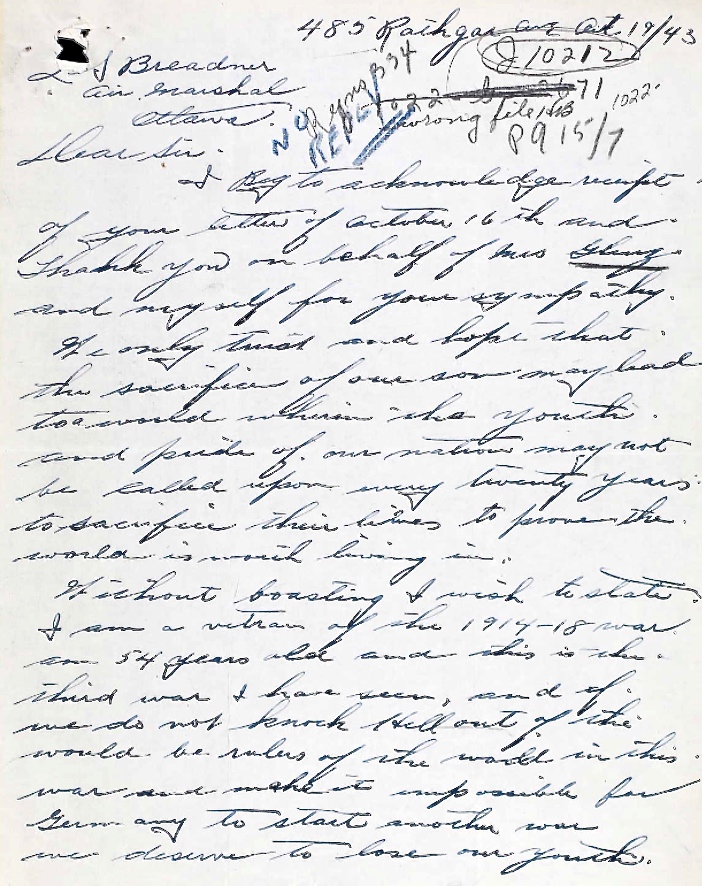 485 Rathgar ave Oct 19/43
J10212
L S Breadner
Air Marshal
Ottawa.
1022
wrong file
P915/7
NO
REPLY
Dear Sir.
I Beg to acknowledge receipt
of your letter of October 16th and
Thank you on behalf of Mrs
and myself for your sympathy.
We only trust and hope that
the sacrifice of our son may lead
to a world wherin the youth
and pride of our nation may not
be called upon every twenty years
to sacrifice their lives to prove the
world is worth living in.
Without boasting I wish to state
I am a vetran of the 1914-18 war
am 54 years old and this is the
third war I have seen, and if
we do not knock Hell out of the
would be rulers of the world in this
war and make it impossible for
Germany to start another war
we deserve to lose our youth.